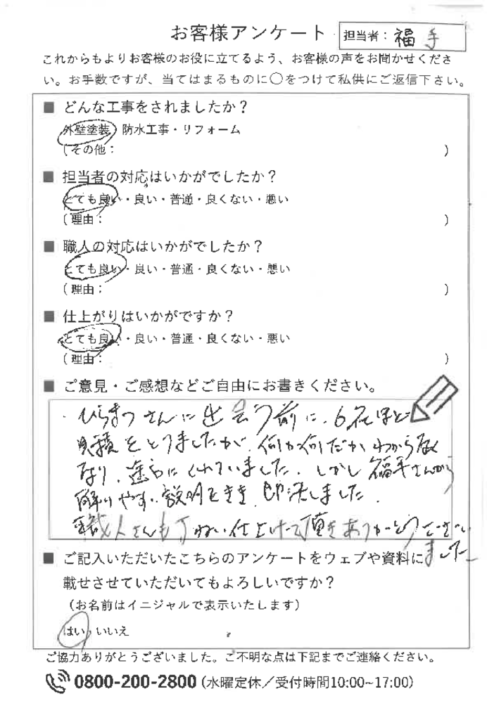 お客様アンケート
担当者: 福手
これからもよりお客様のお役に立てるよう、お客様の声をお聞かせくださ
い。お手数ですが、当てはまるものに○をつけて私供にご返信下さい。
■ どんな工事をされましたか?
外壁塗装・防水工事・リフォーム
(その他: )
■ 担当者の対応はいかがでしたか?
とても良い・良い・普通・良くない・悪い
(理由: )
■ 職人の対応はいかがでしたか?
とても良い・良い・普通・良くない・悪い
(理由: )
■ 仕上がりはいかがですか?
とても良い・良い・普通・良くない・悪い
(理由: )
■ ご意見・ご感想などご自由にお書きください。
・ひらまつさんに出会う前に、6社ほど
見積をとりましたが、何が何だかわからなく
なり、途方にくれていました。しかし福手さんから
解りやすい説明をきき、即決しました。
職人さんも丁ねい仕上げて頂きありがとうござい
ました
■ ご記入いただいたこちらのアンケートをウェブや資料に
載せさせていただいてもよろしいですか?
(お名前はイニシャルで表示いたします)
はい・いいえ
ご協力ありがとうございました。ご不明な点は下記までご連絡ください。
0800-200-2800 (水曜定休／受付時間10:00~17:00)